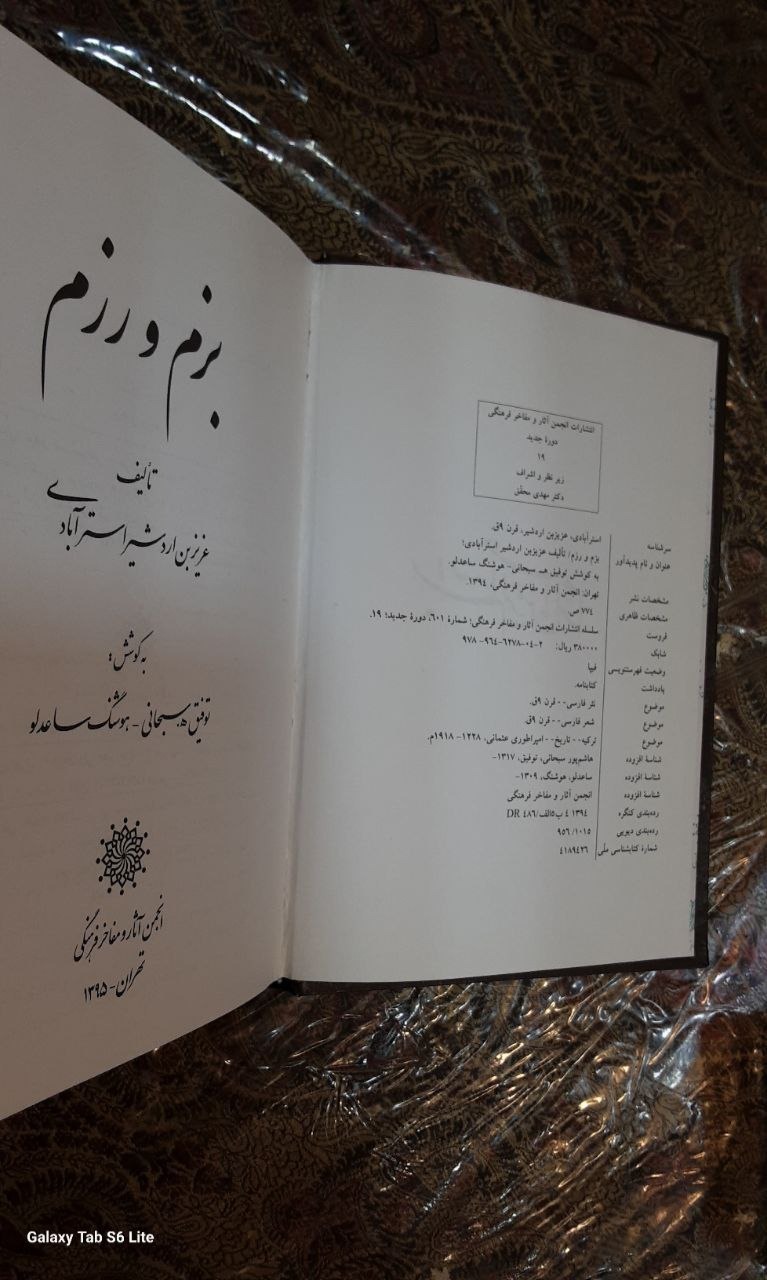 انتشارات انجمن آثار و مفاخر فرهنگی
دورهٔ جدید
۱۹
زیر نظر و اشراف
دکتر مهدی محقق
سرشناسه استرآبادی، عزیزبن اردشیر، قرن ۹ق.
عنوان و نام پدیدآور بزم و رزم/ تألیف عزیزبن اردشیر استرآبادی؛
به کوشش توفیق هـ. سبحانی- هوشنگ ساعدلو.
مشخصات نشر تهران: انجمن آثار و مفاخر فرهنگی، ۱۳۹۴.
مشخصات ظاهری ۷۷۴ ص.
فروست سلسله انتشارات انجمن آثار و مفاخر فرهنگی؛ شمارهٔ ۶۰۱، دورهٔ جدید؛ ۱۹.
شابک ۳۸۰۰۰۰ ریال: ۲-۰۴-۶۲۷۸-۹۶۴-۹۷۸
وضعیت فهرستنویسی فیپا
یادداشت کتابنامه.
موضوع نثر فارسی-- قرن ۹ق.
موضوع شعر فارسی-- قرن ۹ق.
موضوع ترکیه-- تاریخ-- امپراطوری عثمانی، ۱۲۲۸- ۱۹۱۸م.
شناسهٔ افزوده هاشم‌پور سبحانی، توفیق، ۱۳۱۷-
شناسهٔ افزوده ساعدلو، هوشنگ، ۱۳۰۹-
شناسهٔ افزوده انجمن آثار و مفاخر فرهنگی
رده‌بندی کنگره ۱۳۹۴ ۴ ب۵الف/۴۸۶ DR
رده‌بندی دیویی ۹۵۶/۱۰۱۵
شمارهٔ کتابشناسی ملّی ۴۱۸۹۴۲۶
بزم و رزم
تألیف
عزیز بن اردشیر استرآبادی
به کوشش:
توفیق هـ. سبحانی - هوشنگ ساعدلو
انجمن آثار و مفاخر فرهنگی
تهران - ۱۳۹۵
Galaxy Tab S6 Lite